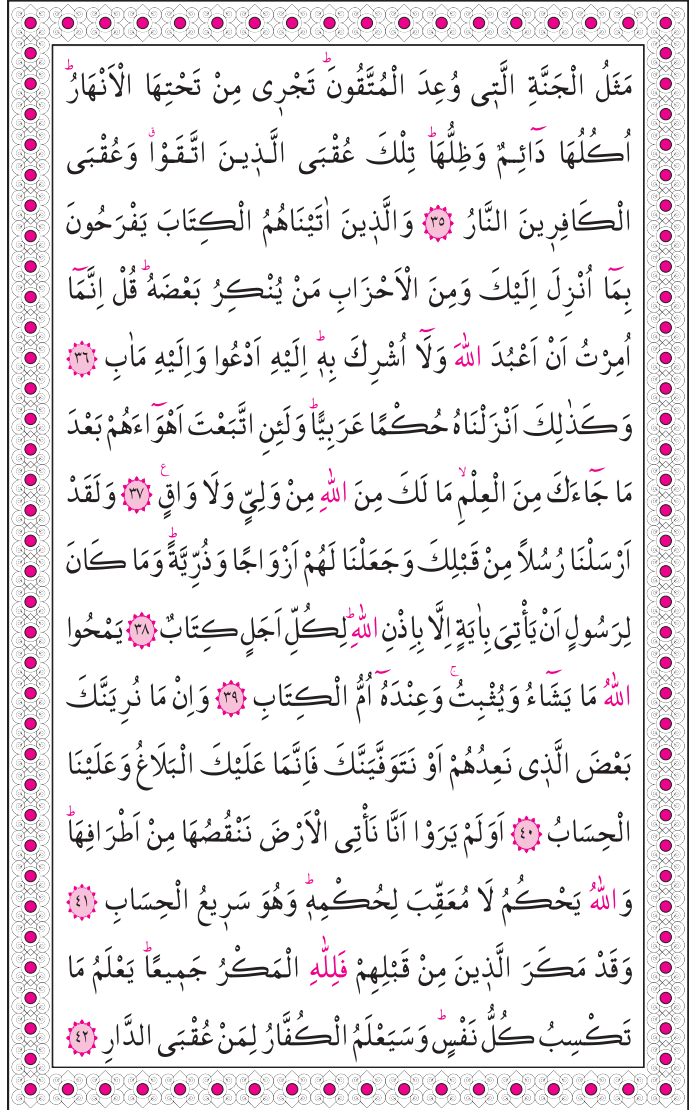 مَثَلُ الْجَنَّةِ الَّتٖى وُعِدَ الْمُتَّقُونَؕ تَجْرٖى مِنْ تَحْتِهَا الْاَنْهَارُؕ
اُكُلُهَا دَٓائِمٌ وَظِلُّهَاؕ تِلْكَ عُقْبَى الَّذٖينَ اتَّقَوْاࣗ وَعُقْبَى
الْكَافِرٖينَ النَّارُ ﴿٣٥﴾ وَالَّذٖينَ اٰتَيْنَاهُمُ الْكِتَابَ يَفْرَحُونَ
بِمَٓا اُنْزِلَ اِلَيْكَ وَمِنَ الْاَحْزَابِ مَنْ يُنْكِرُ بَعْضَهُؕ قُلْ اِنَّمَٓا
اُمِرْتُ اَنْ اَعْبُدَ اللّٰهَ وَلَٓا اُشْرِكَ بِهٖؕ اِلَيْهِ اَدْعُوا وَاِلَيْهِ مَاٰبِ ﴿٣٦﴾
وَكَذٰلِكَ اَنْزَلْنَاهُ حُكْمًا عَرَبِيًّاؕ وَلَئِنِ اتَّبَعْتَ اَهْوَٓاءَهُمْ بَعْدَ
مَا جَٓاءَكَ مِنَ الْعِلْمِۙ مَا لَكَ مِنَ اللّٰهِ مِنْ وَلِىٍّ وَلَا وَاقٍࣖ ﴿٣٧﴾ وَلَقَدْ
اَرْسَلْنَا رُسُلًا مِنْ قَبْلِكَ وَجَعَلْنَا لَهُمْ اَزْوَاجًا وَذُرِّيَّةًؕ وَمَا كَانَ
لِرَسُولٍ اَنْ يَأْتِىَ بِاٰيَةٍ اِلَّا بِاِذْنِ اللّٰهِؕ لِكُلِّ اَجَلٍ كِتَابٌ ﴿٣٨﴾ يَمْحُوا
اللّٰهُ مَا يَشَٓاءُ وَيُثْبِتُۚ وَعِنْدَهُٓ اُمُّ الْكِتَابِ ﴿٣٩﴾ وَاِنْ مَا نُرِيَنَّكَ
بَعْضَ الَّذٖى نَعِدُهُمْ اَوْ نَتَوَفَّيَنَّكَ فَاِنَّمَا عَلَيْكَ الْبَلَاغُ وَعَلَيْنَا
الْحِسَابُ ﴿٤٠﴾ اَوَلَمْ يَرَوْا اَنَّا نَأْتِى الْاَرْضَ نَنْقُصُهَا مِنْ اَطْرَافِهَاؕ
وَاللّٰهُ يَحْكُمُ لَا مُعَقِّبَ لِحُكْمِهٖؕ وَهُوَ سَرٖيعُ الْحِسَابِ ﴿٤١﴾
وَقَدْ مَكَرَ الَّذٖينَ مِنْ قَبْلِهِمْ فَلِلّٰهِ الْمَكْرُ جَمٖيعًاؕ يَعْلَمُ مَا
تَكْسِبُ كُلُّ نَفْسٍؕ وَسَيَعْلَمُ الْكُفَّارُ لِمَنْ عُقْبَى الدَّارِ ﴿٤٢﴾